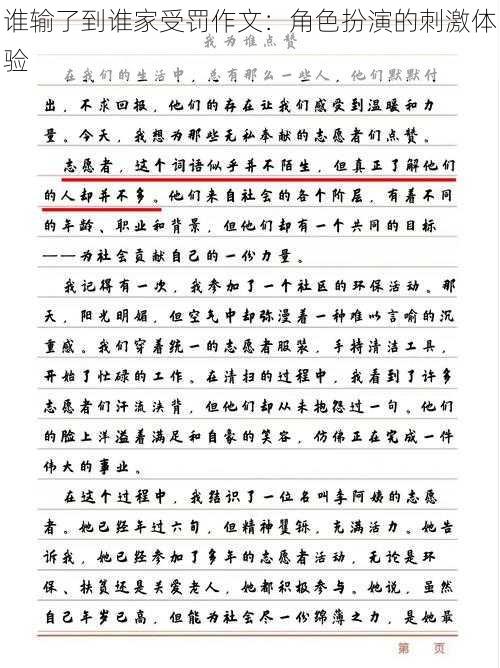 谁输了到谁家受罚作文：角色扮演的刺激体
验
我为谁点赞
在我们的生活中，总有那么一些人，他们默默付
出，不求回报，他们的存在让我们感受到温暖和力
量。今天，我想为那些无私奉献的志愿者们点赞。
志愿者，这个词语似乎并不陌生，但真正了解他们
的人却并不多。他们来自社会的各个阶层，有着不同
的年龄、职业和背景，但他们却有一个共同的目标
——为社会贡献自己的一份力量。
我记得有一次，我参加了一个社区的环保活动。那
天，阳光明媚，但空气中却弥漫着一种难以言喻的沉
重感。我们穿着统一的志愿者服装，手持清洁工具，
开始了忙碌的工作。在清扫的过程中，我看到了许多
志愿者们汗流浃背，但他们却从未抱怨过一句。他们
的脸上洋溢着满足和自豪的笑容，仿佛正在完成一件
伟大的事业。
在这个过程中，我结识了一位名叫李阿姨的志愿
者。她已经年过六旬，但精神矍铄，充满活力。她告
诉我，她已经参加了多年的志愿者活动，无论是环
保、扶贫还是关爱老人，她都积极参与。她说，虽然
自己年岁已高，但能为社会尽一份绵薄之力，是她最
第 页